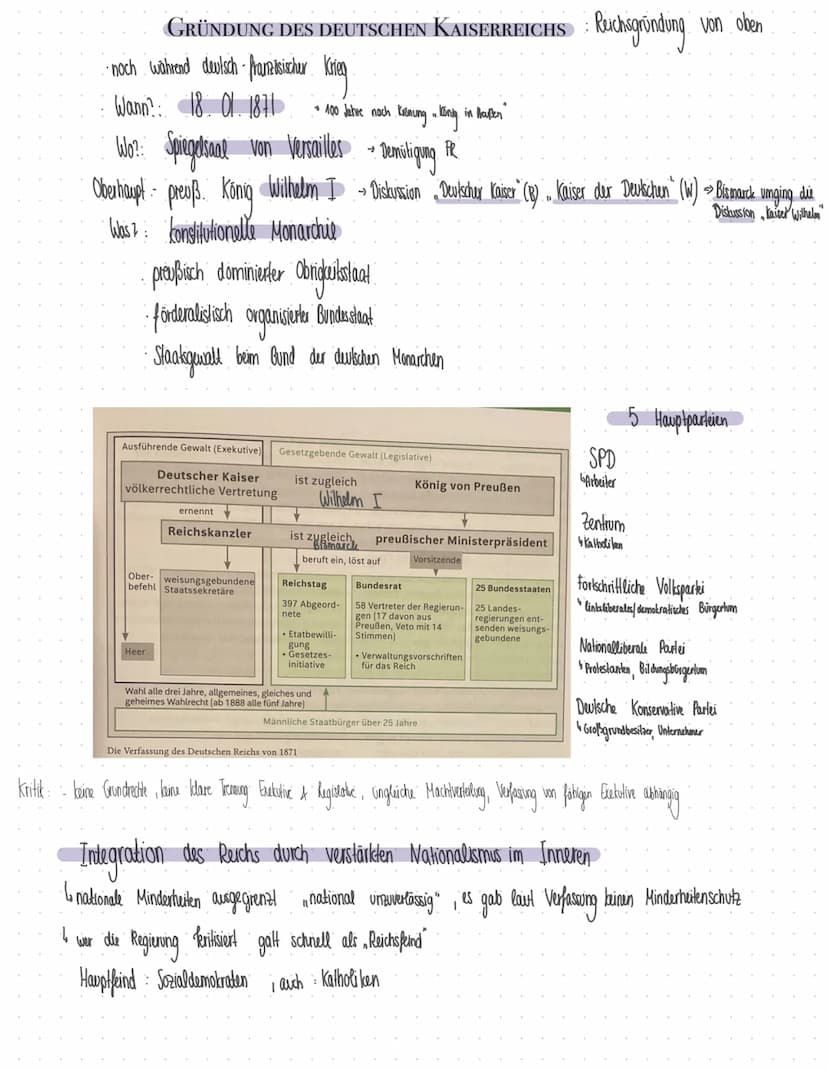 GRÜNDUNG DES DEUTSCHEN KAISERREICHS : Reichsgründung von oben
· noch während deutsch-französischer Krieg
· Wann?: 18. 01. 1871 → 100 Jahre nach Krönung „König in
Wo?: Spiegelsaal von Versailles → Demütigung FR
Oberhaupt - preuß. König Wilhelm I → Diskussion „Deutscher Kaiser" (B) „Kaiser der Deutschen" (W) ⇒ Bismarck umging die
Diskussion „Kaiser Wilhelm"
Was?: konstitutionelle Monarchie
· preußisch dominierter Obrigkeitsstaat
· förderalistisch organisierter Bundesstaat
· Staatsgewalt beim Bund der deutschen Monarchen
Ausführende Gewalt (Exekutive) Gesetzgebende Gewalt (Legislative)
Deutscher Kaiser ist zugleich König von Preußen
völkerrechtliche Vertretung Wilhelm I
ernennt
Reichskanzler ist zugleich preußischer Ministerpräsident
Bismarck
beruft ein, löst auf Vorsitzende
Ober-
befehl
weisungsgebundene
Staatssekretäre
Heer
Reichstag
397 Abgeord-
nete
• Etatbewilli-
gung
• Gesetzes-
initiative
Bundesrat
58 Vertreter der Regierun-
gen (17 davon aus
Preußen, Veto mit 14
Stimmen)
• Verwaltungsvorschriften
für das Reich
25 Bundesstaaten
25 Landes-
regierungen ent-
senden weisungs-
gebundene
Wahl alle drei Jahre, allgemeines, gleiches und
geheimes Wahlrecht (ab 1888 alle fünf Jahre)
Männliche Staatbürger über 25 Jahre
Die Verfassung des Deutschen Reichs von 1871
5 Hauptparteien
SPD
↳ Arbeiter
Zentrum
↳ Katholiken
Fortschrittliche Volkspartei
↳ linksliberales/demokratisches Bürgertum
Nationalliberale Partei
↳ Protestanten, Bildungsbürgertum
Deutsche Konservative Partei
↳ Großgrundbesitzer, Unternehmer
Kritik: - keine Grundrechte, keine klare Trennung Exekutive & Legislative, ungleiche Machtverteilung, Verfassung von fähigen Exekutive abhängig
Integration des Reichs durch verstärkten Nationalismus im Inneren
↳ nationale Minderheiten ausgegrenzt „national unzuverlässig", es gab laut Verfassung keinen Minderheitenschutz
↳ wer die Regierung kritisiert galt schnell als „Reichsfeind"
Hauptfeind : Sozialdemokraten , auch : Katholiken